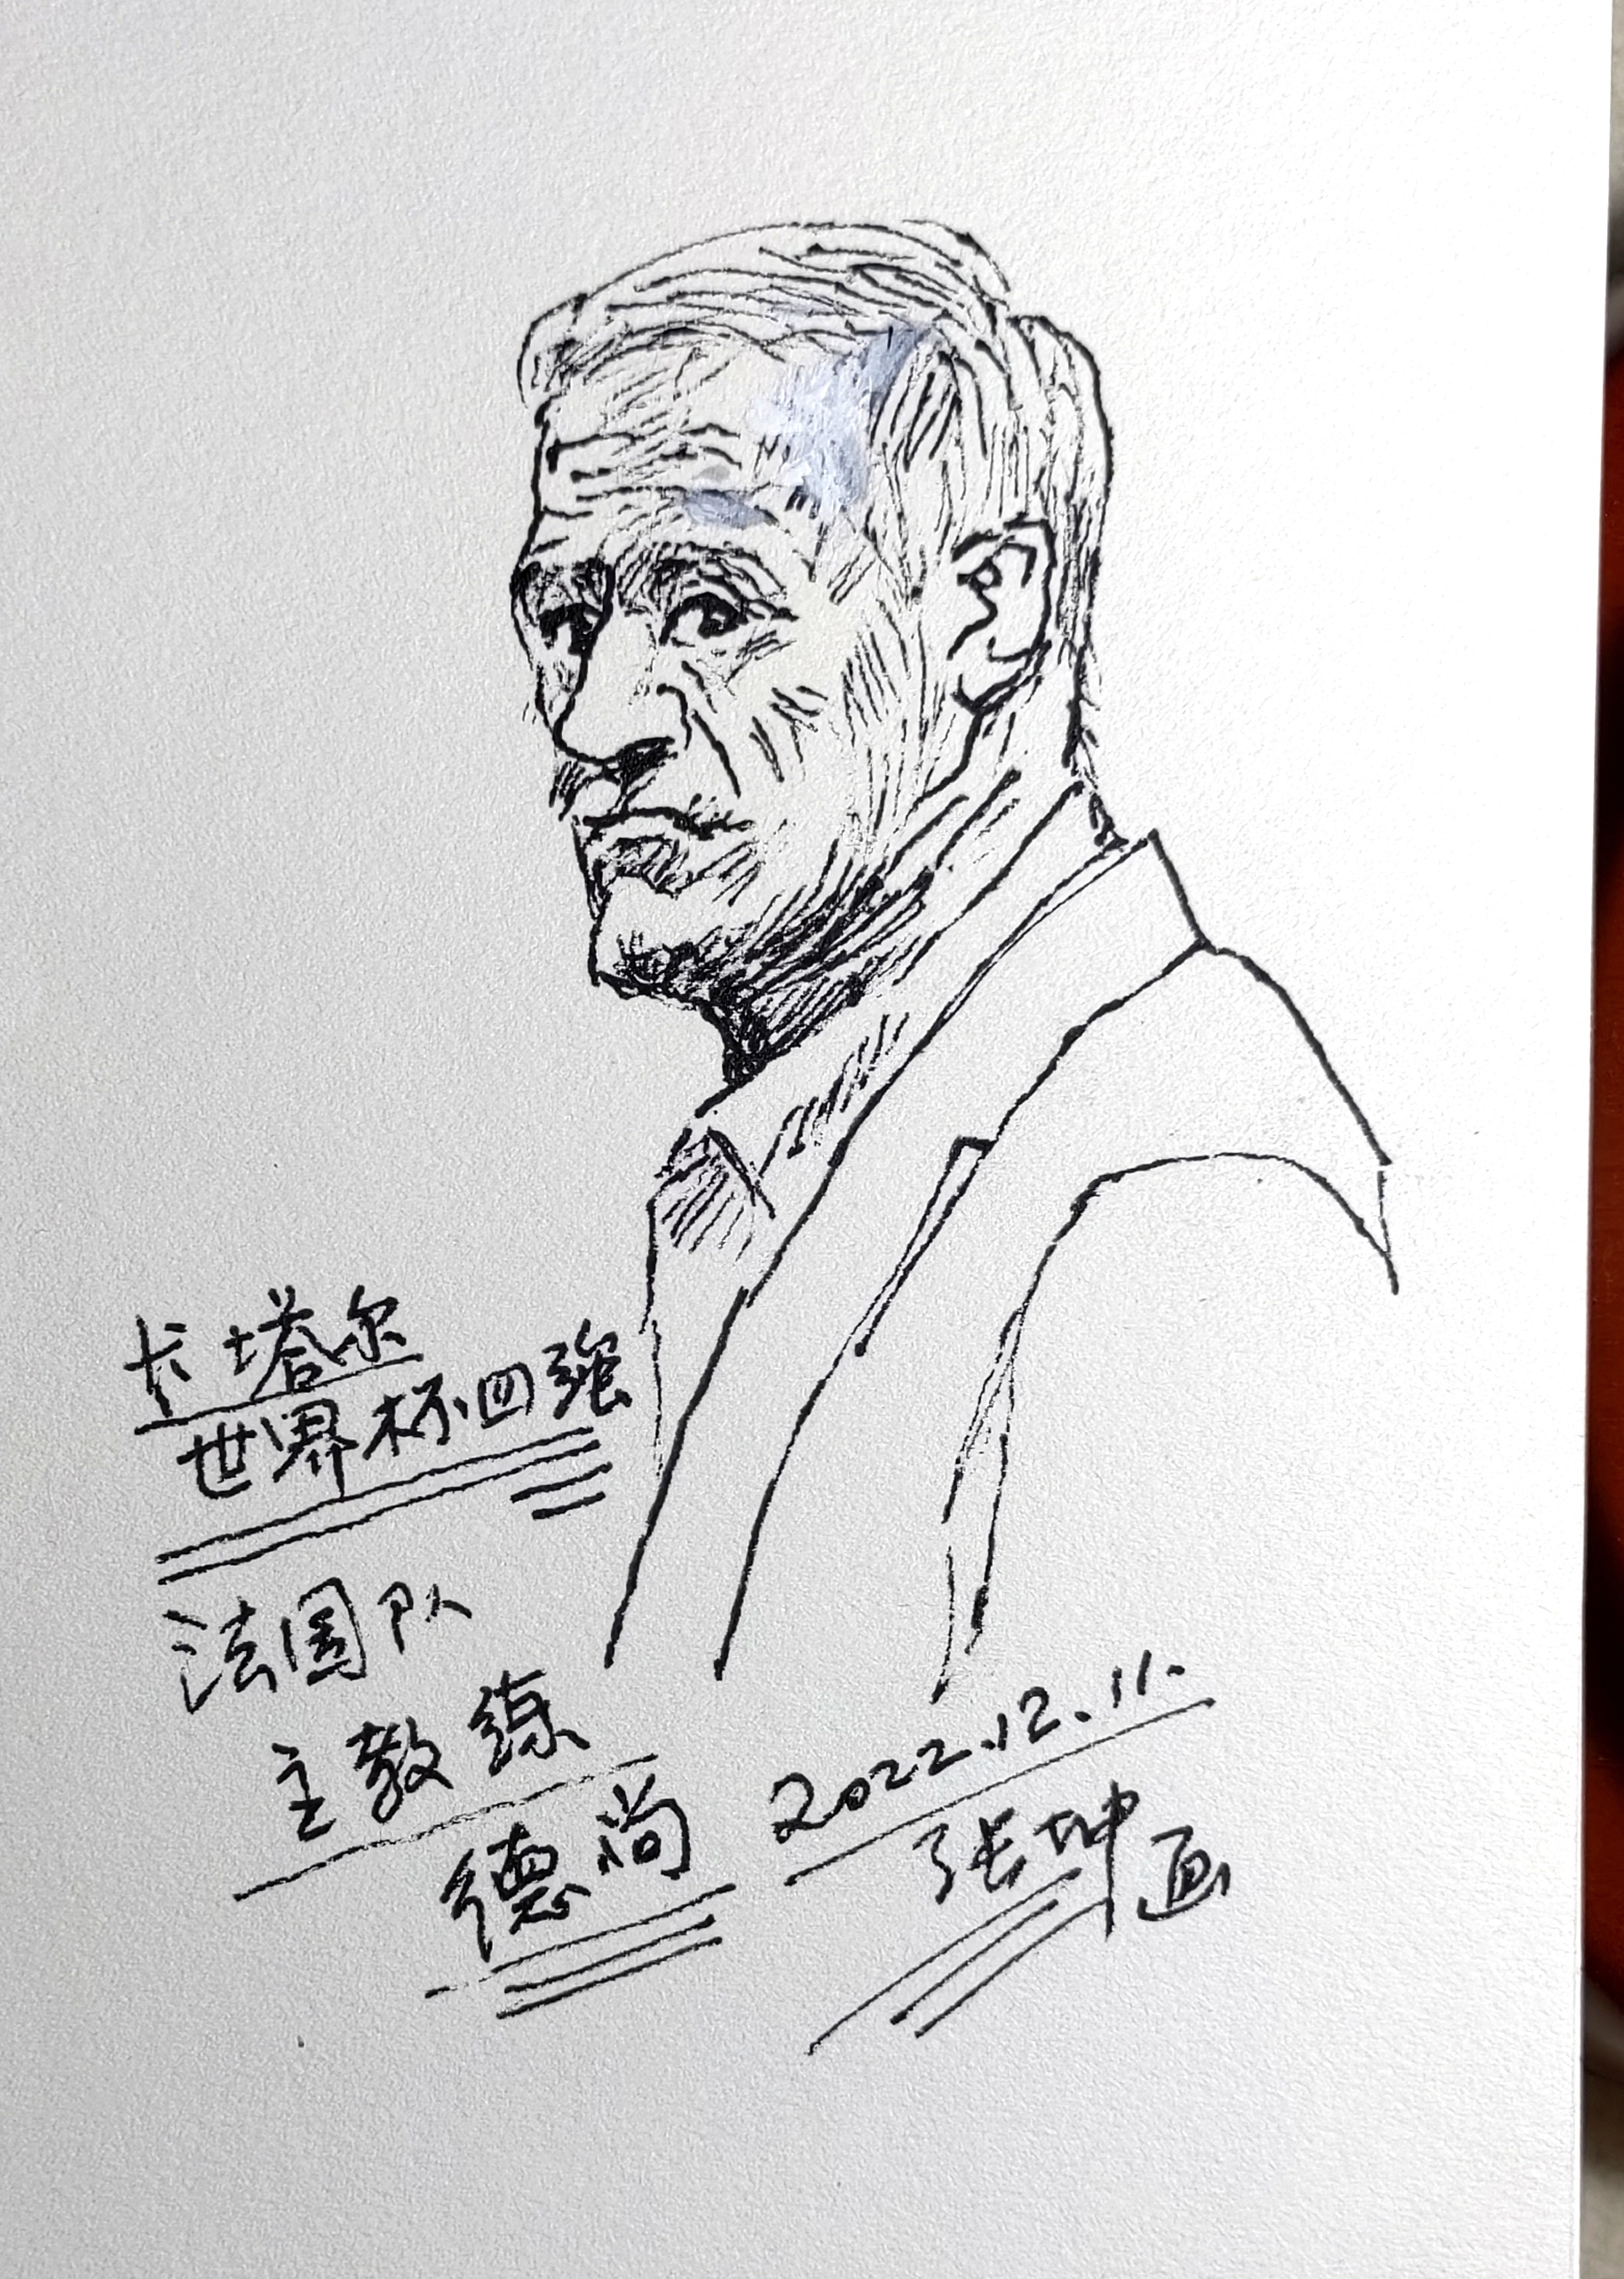 卡塔尔
世界杯四强
法国队
主教练
德尚
2022.12.11.
张坤画